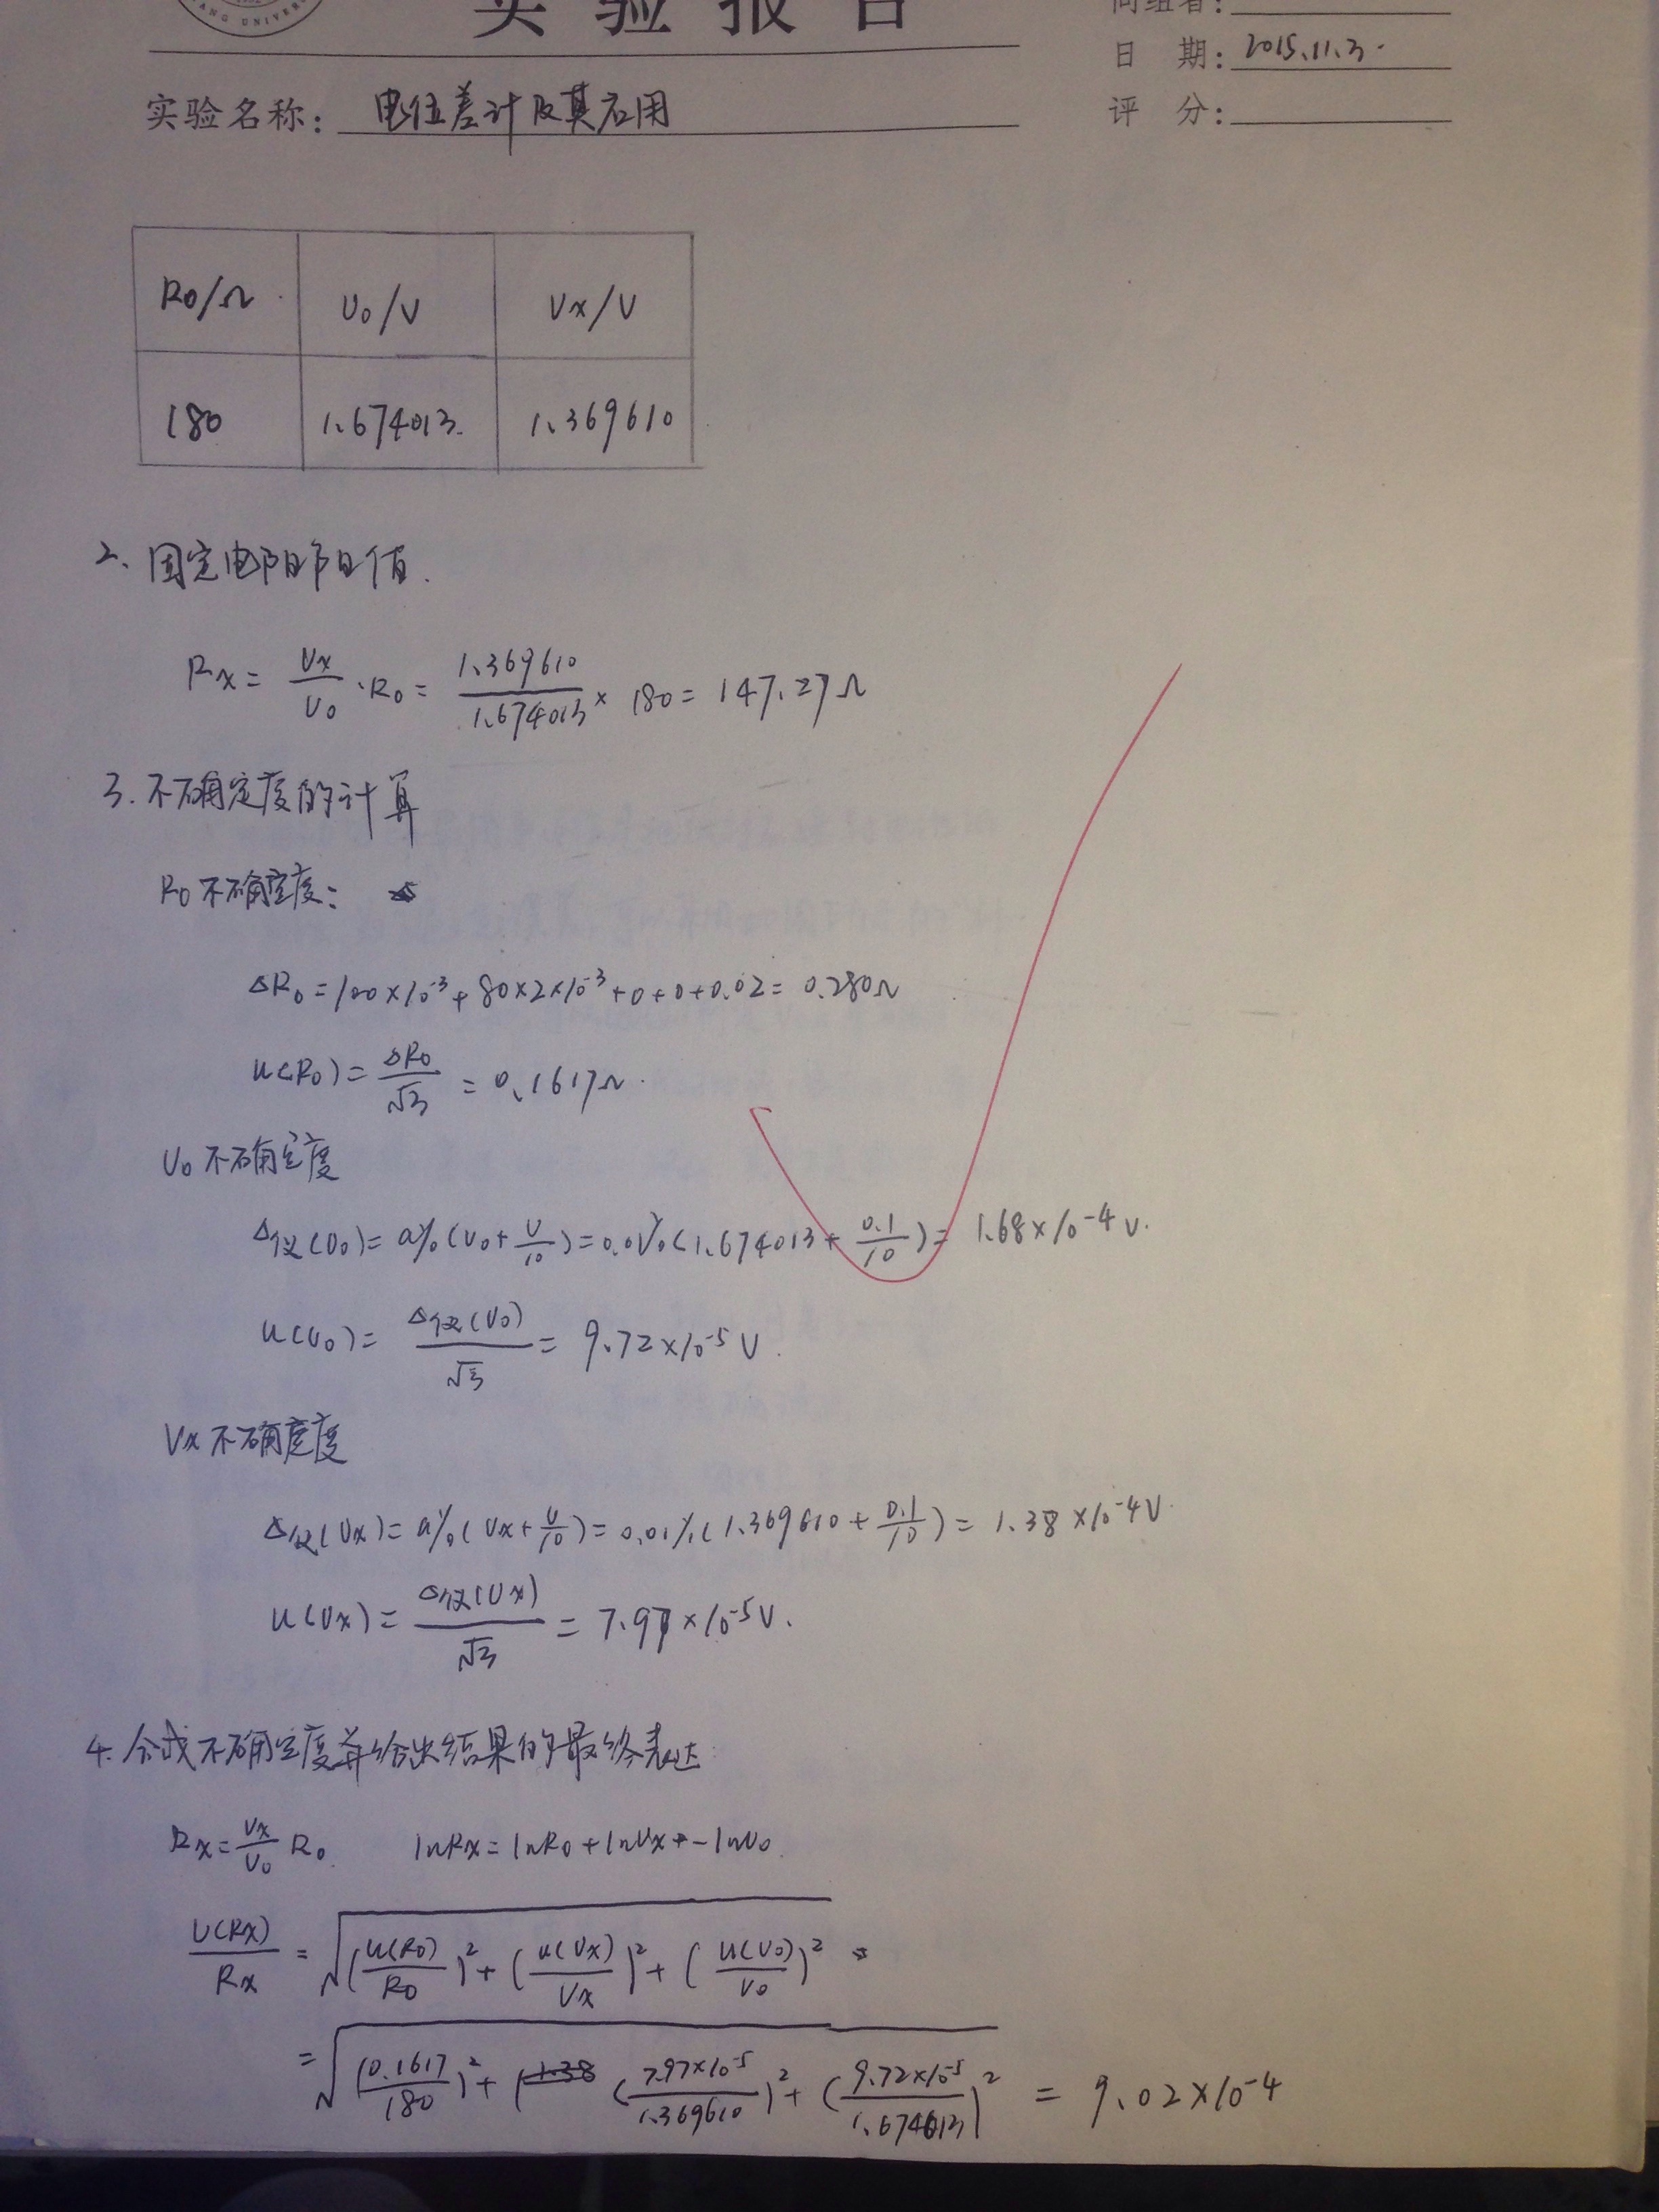 ANG UNIVER
实验报告
同组者:
日 期: 2015.11.3.
实验名称: 电位差计及其应用
评 分:
R0/Ω U0/V Vx/V
180 1.674013 1.369610
2、固定电阻阻值.
Rx = Vx/V0 · R0 = 1.369610/1.674013 × 180 = 147.27Ω
3. 不确定度的计算
R0不确定度:
ΔR0 = 100×10⁻³ + 80×2×10⁻³ + 0 + 0 + 0.02 = 0.280Ω
u(R0) = ΔR0/√3 = 0.1617Ω.
U0不确定度
Δ仪(U0) = a%(U0 + U/10) = 0.01%(1.674013 + 0.1/10) = 1.68×10⁻⁴V.
u(U0) = Δ仪(U0)/√3 = 9.72×10⁻⁵V.
Vx不确定度
Δ仪(Ux) = a%(Ux + U/10) = 0.01%(1.369610 + 0.1/10) = 1.38×10⁻⁴V.
u(Ux) = Δ仪(Ux)/√3 = 7.97×10⁻⁵V.
4. 合成不确定度并给出结果的最终表达
Rx = Vx/V0 R0. lnRx = lnR0 + lnVx - lnU0.
U(Rx)/Rx = √((u(R0)/R0)² + (u(Vx)/Vx)² + (u(V0)/V0)²) =
= √((0.1617/180)² + (7.97×10⁻⁵/1.369610)² + (9.72×10⁻⁵/1.674013)²) = 9.02×10⁻⁴